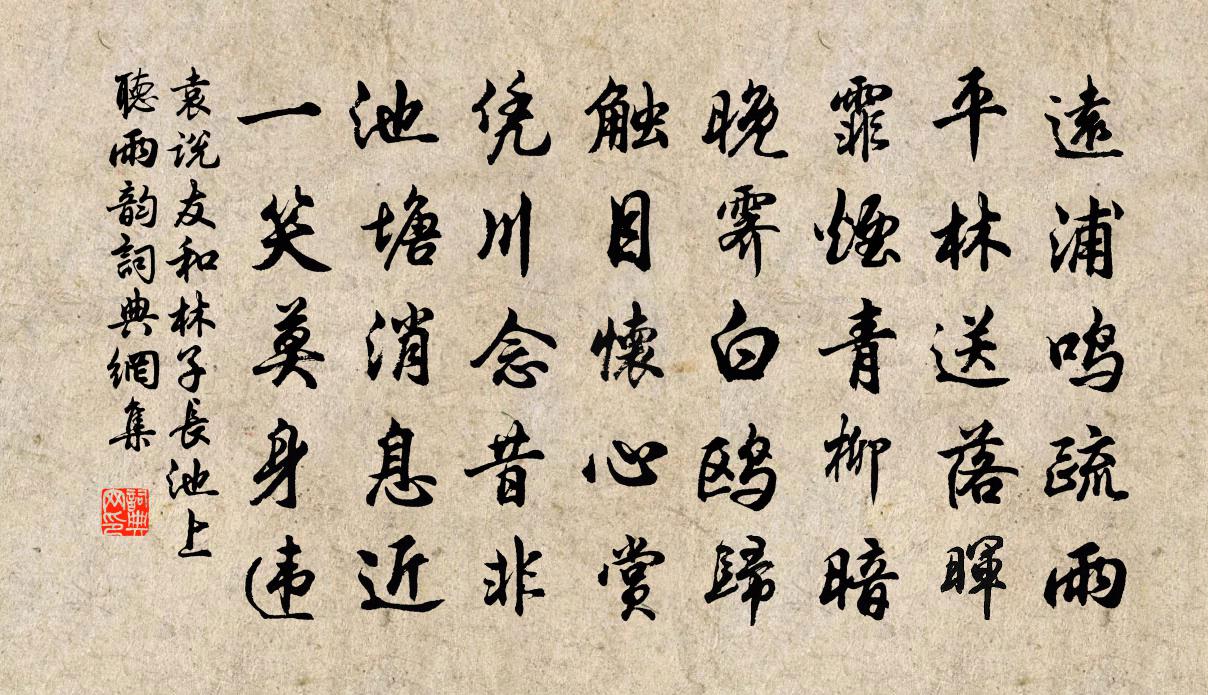 遠浦鳴疏雨
平林送落暉
霏煙青柳暗
晚霽白鸥歸
触目懷心賞
凭川念昔非
池塘消息近
一笑莫身违
袁说友和林子長池上
聽雨韵詞典網集
詞典网印